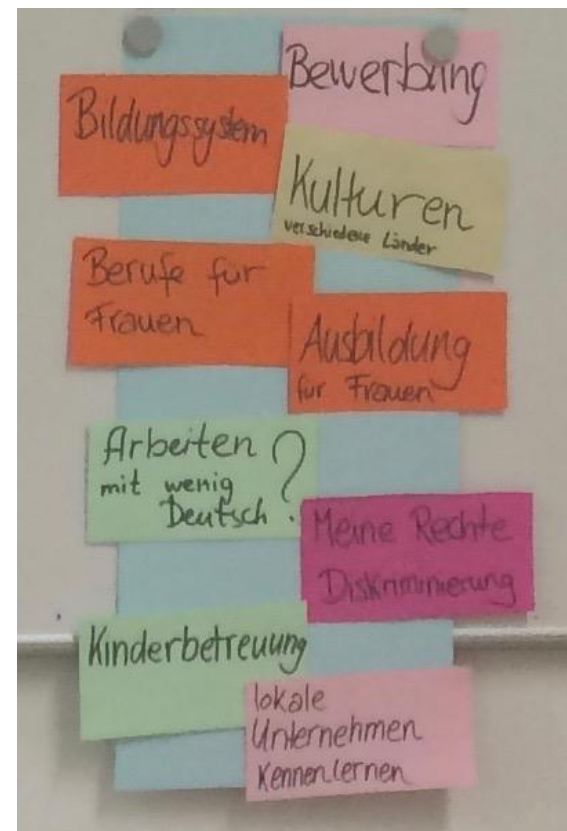 Bewerbung
Bildungssystem
Kulturen
verschiedene Länder
Berufe für
Frauen
Ausbildung
für Frauen
Arbeiten
mit wenig
Deutsch ?
Meine Rechte
Diskriminierung
Kinderbetreuung
lokale
Unternehmen
Kennenlernen